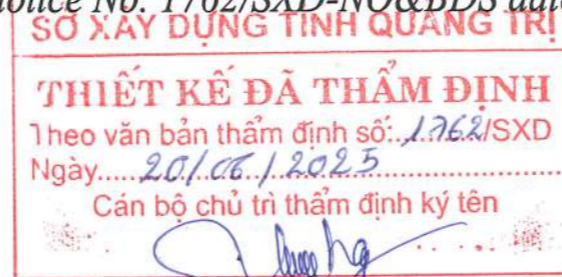 No. 1762/SXD-NO&BDS
SỞ XÂY DỰNG TỈNH QUẢNG TRỊ
THIẾT KẾ ĐÃ THẨM ĐỊNH
Theo văn bản thẩm định số:..1762/SXD
Ngày.....20/06/2025
Cán bộ chủ trì thẩm định ký tên